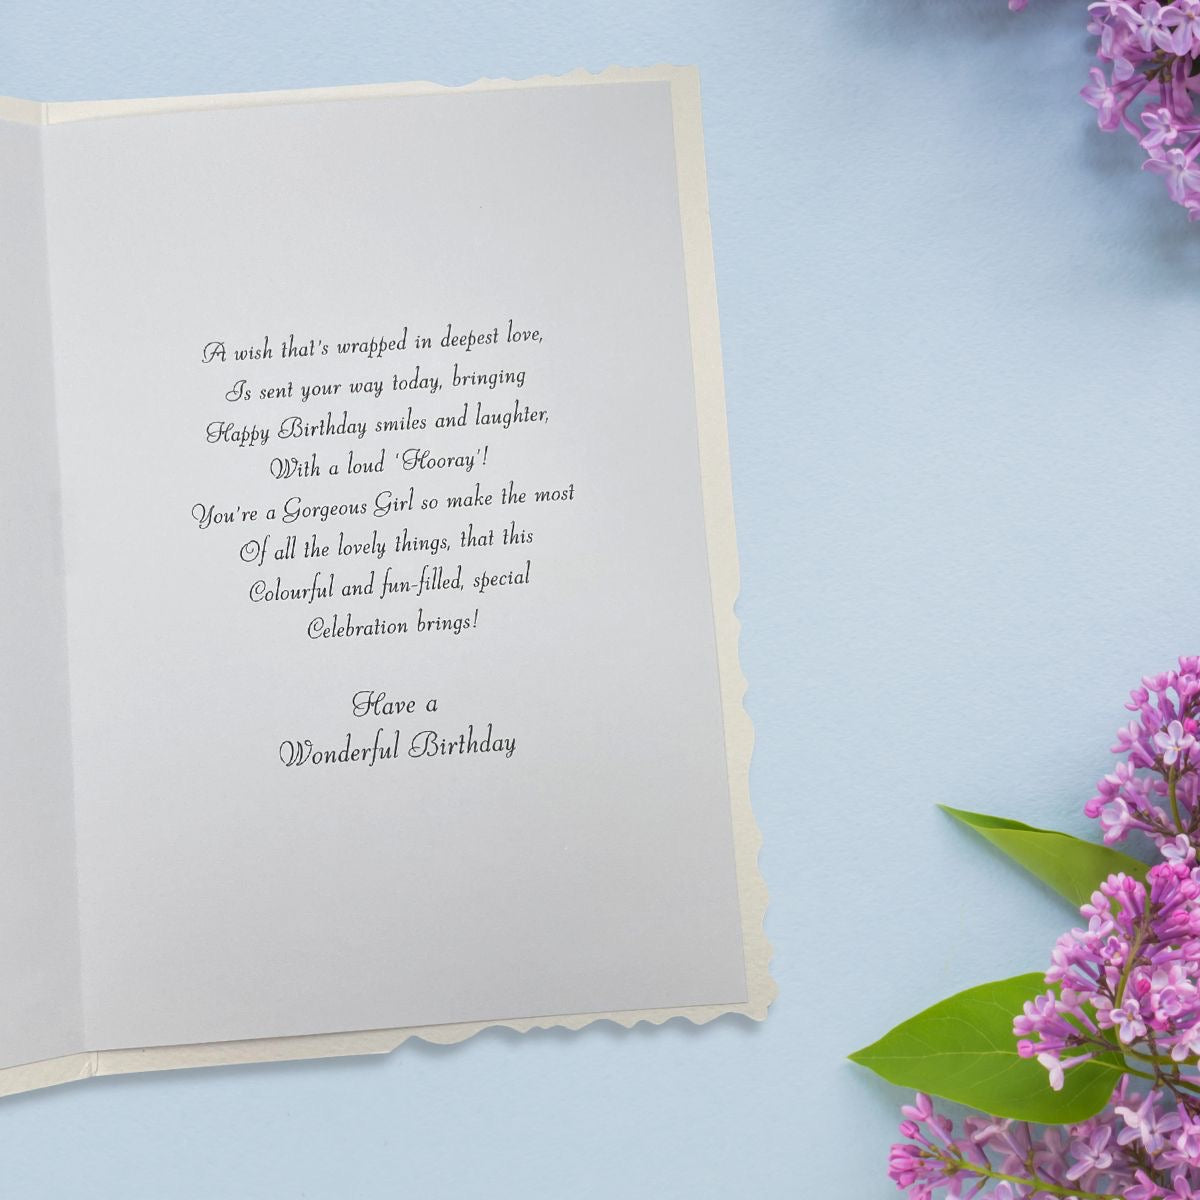 A wish that's wrapped in deepest love,
Is sent your way today, bringing
Happy Birthday smiles and laughter,
With a loud 'Hooray'!
You're a Gorgeous Girl so make the most
Of all the lovely things, that this
Colourful and fun-filled, special
Celebration brings!
Have a
Wonderful Birthday